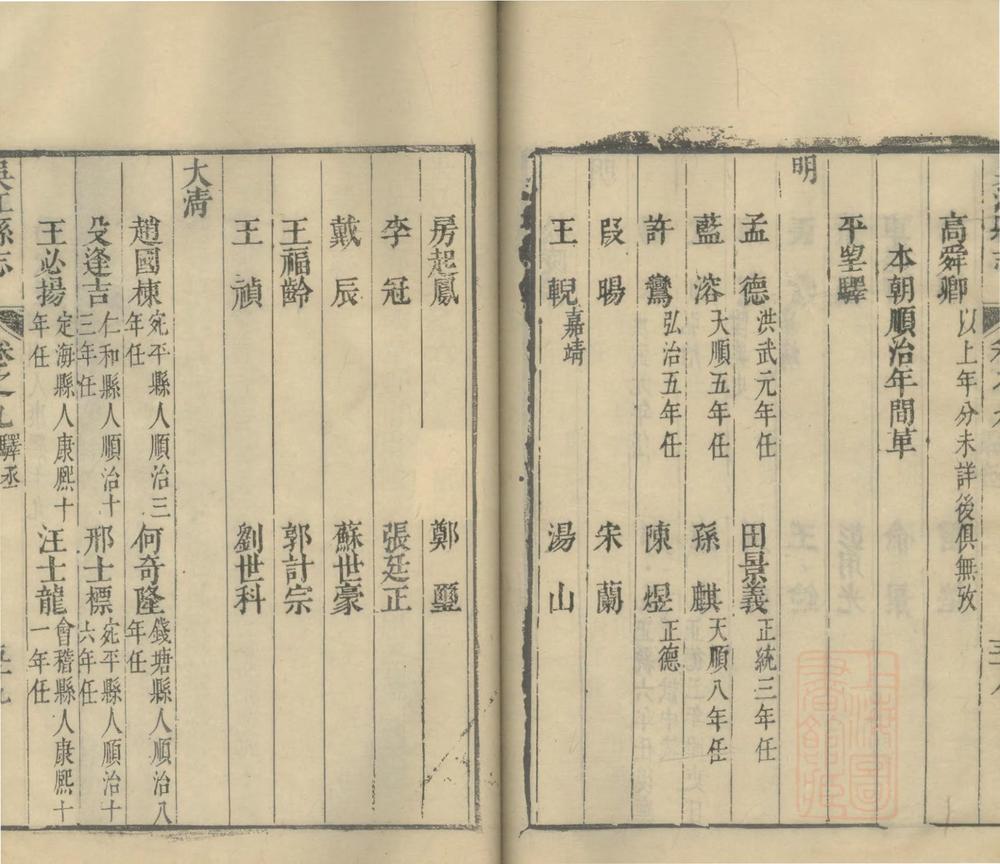 高舜卿以上年分未詳後俱無攷
本朝順治年間革
平望驛
明
孟德洪武元年任 田景義正統三年任
藍溶大順五年任 孫麒天順八年任
許鸞弘治五年任 陳煜正德
段暘 宋蘭
王輗嘉靖 湯山
房起鳳 鄭璽
李冠 張廷正
戴辰 蘇世豪
王福齡 郭計宗
王禎 劉世科
大清
趙國棟宛平縣人順治三年任 何奇隆錢塘縣人順治八年任
殳逢吉仁和縣人順治十三年任 邢士標宛平縣人順治十六年任
王必揚定海縣人康熙十年任 汪士龍會稽縣人康熙十一年任
吳江縣志 卷之九驛丞 五十九